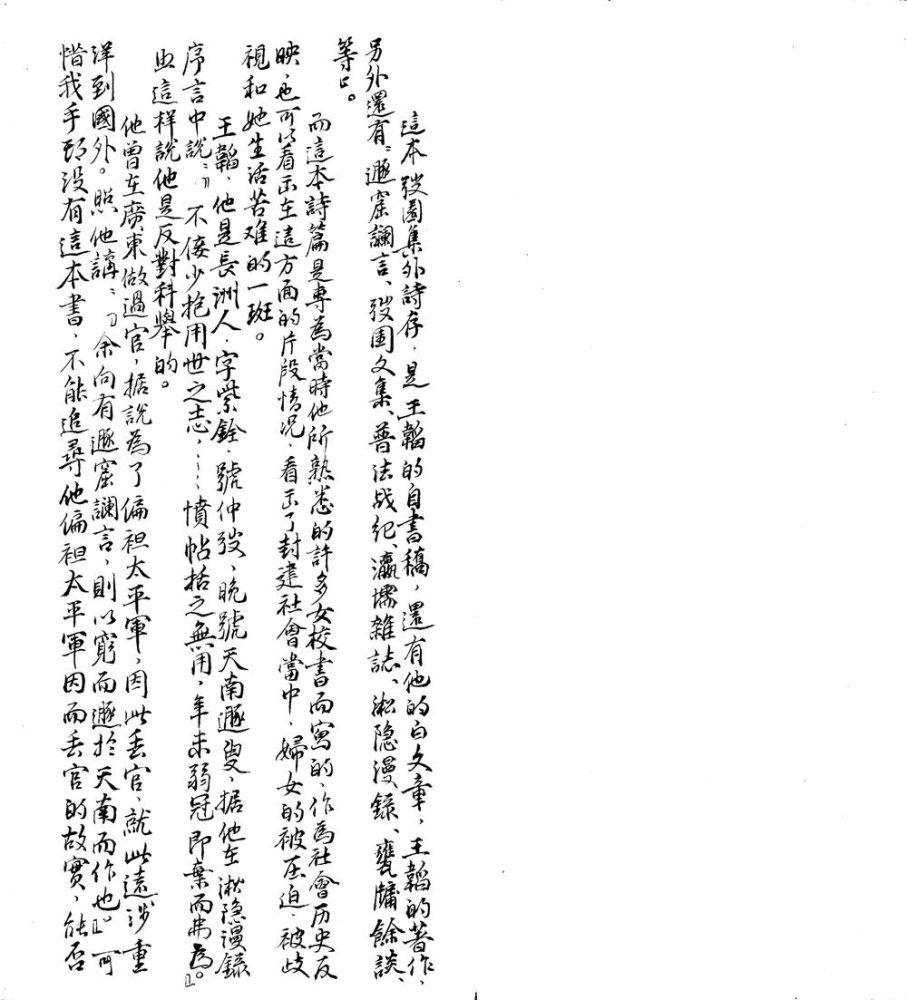 這本弢園集外詩存，是王韜的自書稿，還有他的白文章，王韜的著作、
另外還有：遯窟讕言、弢園文集、普法战纪、瀛壖雜誌、淞隐漫錄、甕牖餘談、
等巳。
而這本詩篇是専為當時他所熟悉的許多女校書而寫的、作為社會历史反
映，也可以看出在這方面的片段情况，看出了封建社會當中，婦女的被压迫、被歧
視和她生活苦难的一斑。
王韜，他是長洲人，字紫銓，號仲弢，晚號天南遯叟，据他在淞隐漫錄
序言中說：『不佞少抱用世之志，……憤帖括之無用，年未弱冠即棄而弗為。』
与這样說他是反對科舉的。
他曾在廣東做過官，据說為了偏袒太平軍，因此丢官，就此遠涉重
洋到國外。照他講：『余向有遯窟讕言，則以窮而遯於天南而作也。』可
惜我手頭没有這本書，不能追尋他偏袒太平軍因而丢官的故實，能否